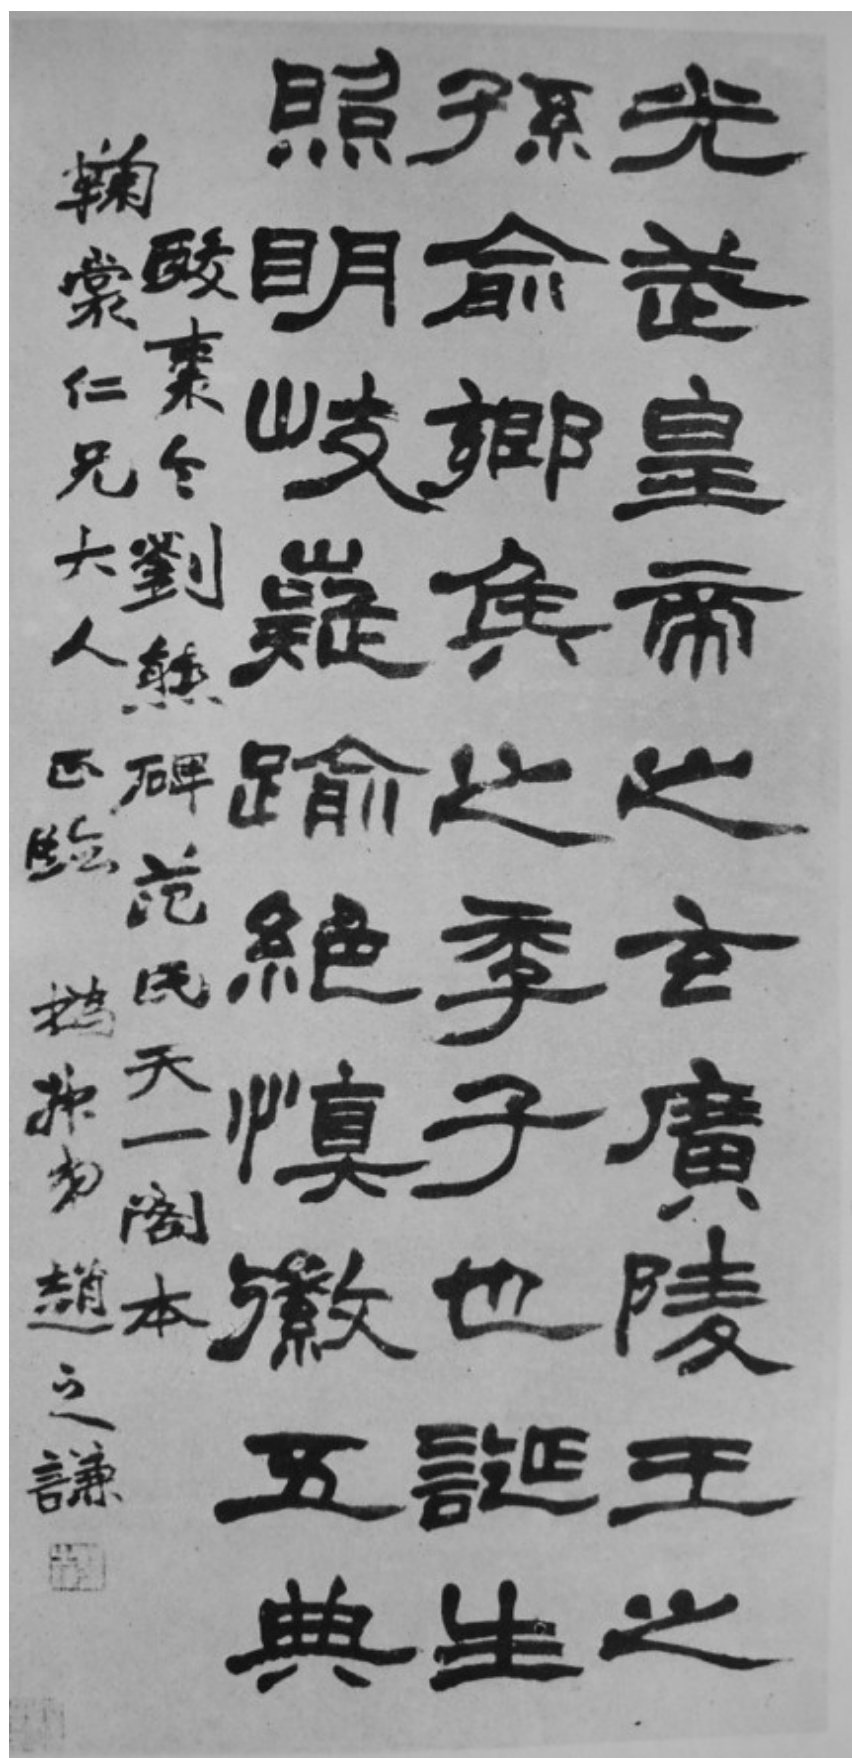 光武皇帝之玄廣陵王之
孫俞鄉矦之季子也誕生
照明岐嶷踰絕慎徽五典
酸棗令劉熊碑范氏天一閣本
鞠裳仁兄大人正臨撝叔弟趙之謙